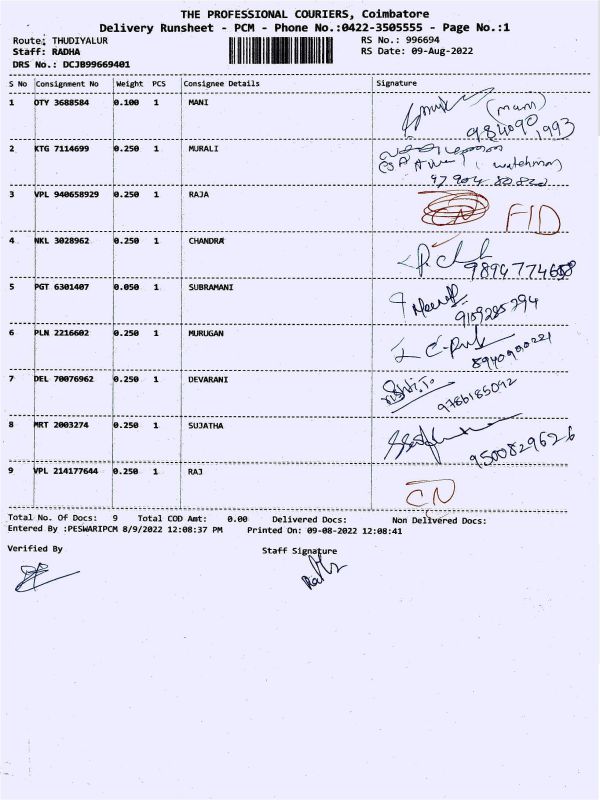 THE PROFESSIONAL COURIERS, Coimbatore
Delivery Runsheet - PCM - Phone No.:0422-3505555 - Page No.:1
Route: THUDIYALUR
RS No.: 996694
Staff: RADHA
RS Date: 09-Aug-2022
DRS No.: DCJB99669401
S No Consignment No Weight PCS Consignee Details Signature
1 OTY 3688584 0.100 1 MANI (mani)
984090 1993
2 KTG 7114699 0.250 1 MURALI
watchman
3 VPL 940658929 0.250 1 RAJA CN FID
4 NKL 3028962 0.250 1 CHANDRA
5 PGT 6301407 0.050 1 SUBRAMANI
9159285294
6 PLN 2216602 0.250 1 MURUGAN
7 DEL 70076962 0.250 1 DEVARANI
9786185092
8 MRT 2003274 0.250 1 SUJATHA
9500829626
9 VPL 214177644 0.250 1 RAJ CN
Total No. Of Docs: 9 Total COD Amt: 0.00 Delivered Docs: Non Delivered Docs:
Entered By :PESWARIPCM 8/9/2022 12:08:37 PM Printed On: 09-08-2022 12:08:41
Verified By Staff Signature